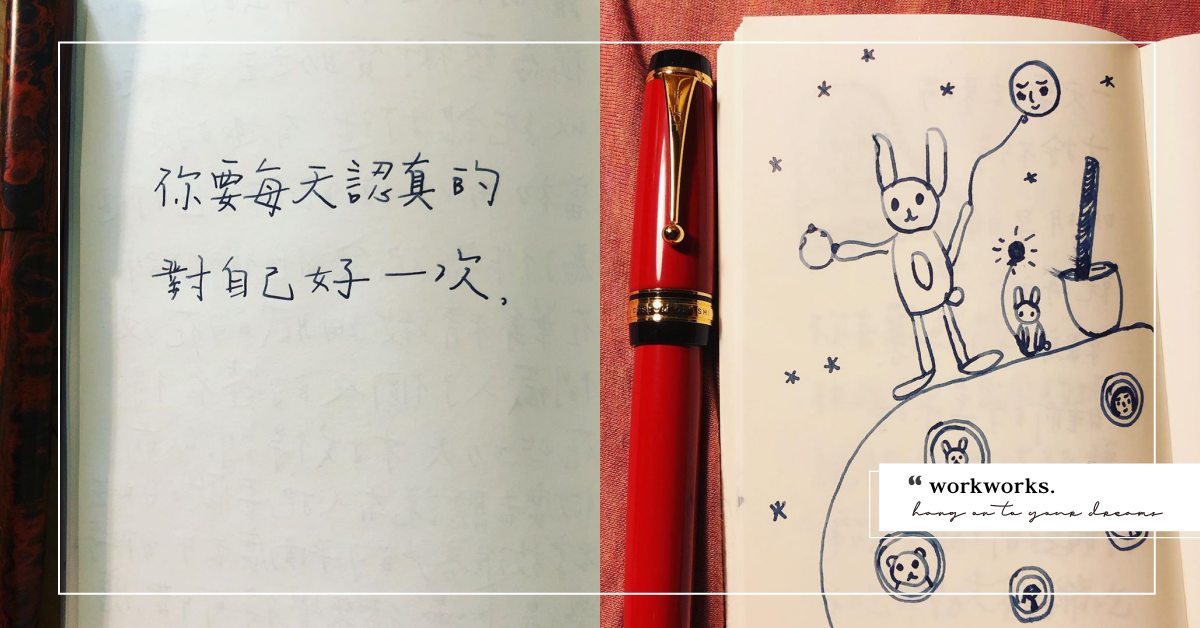 你要每天認真的
對自己好一次.
“ workworks.
hang on to your dreams